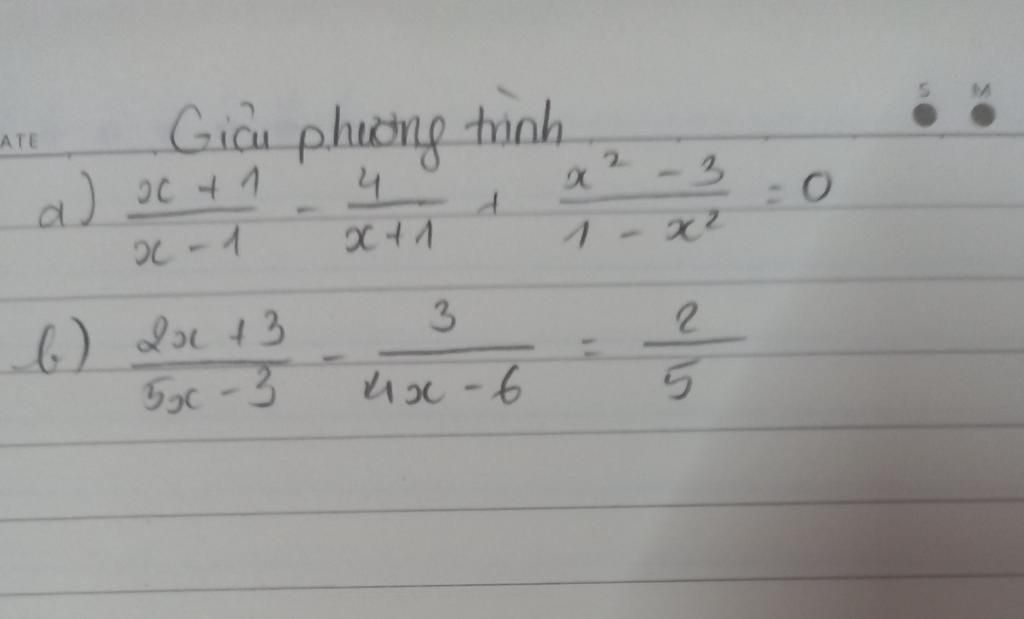 ATE
S M
Giải phương trình
a) \frac{x + 1}{x - 1} - \frac{4}{x + 1} + \frac{x^2 - 3}{1 - x^2} = 0
b) \frac{2x + 3}{5x - 3} - \frac{3}{4x - 6} = \frac{2}{5}